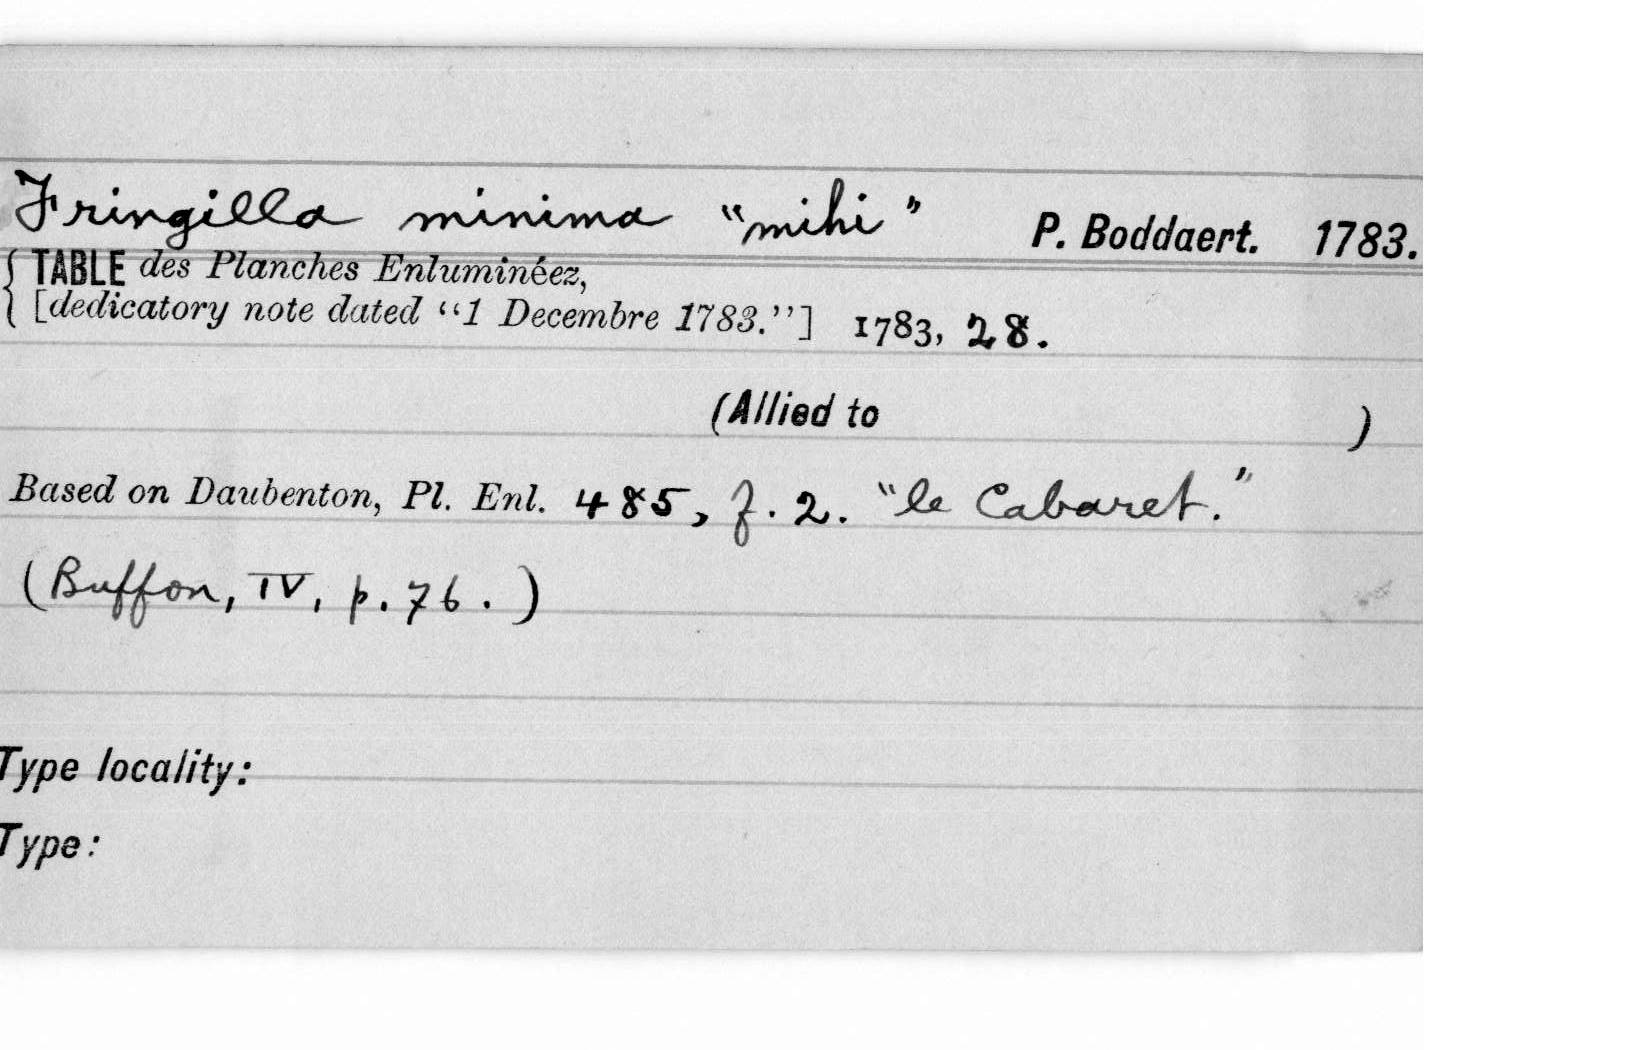 Fringilla minima "mihi" P. Boddaert. 1783.
TABLE des Planches Enluminéez,
[dedicatory note dated "1 Decembre 1783."] 1783, 28.
(Allied to )
Based on Daubenton, Pl. Enl. 485, f. 2. "le Cabaret."
(Buffon, IV, p. 76.)
Type locality:
Type: